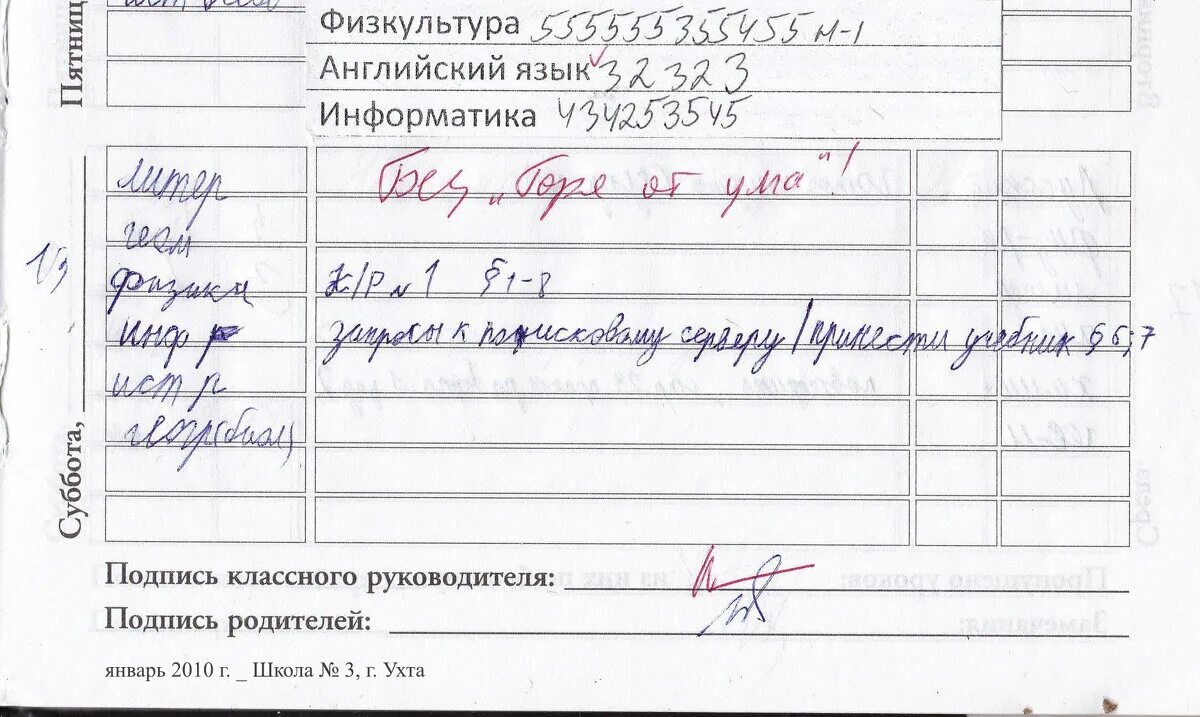 Пятниц
Физкультура 555555355455 н-1
Английский язык 32323
Информатика 434253545
Суббота,
1/3
литер Без „Горя от ума"!
геом
физика К/Р №1 §1-8
инф р запросы к поисковому серверу / принести учебник §6;7
ист р
геогр(биол)
Подпись классного руководителя:
Подпись родителей:
январь 2010 г. _ Школа № 3, г. Ухта